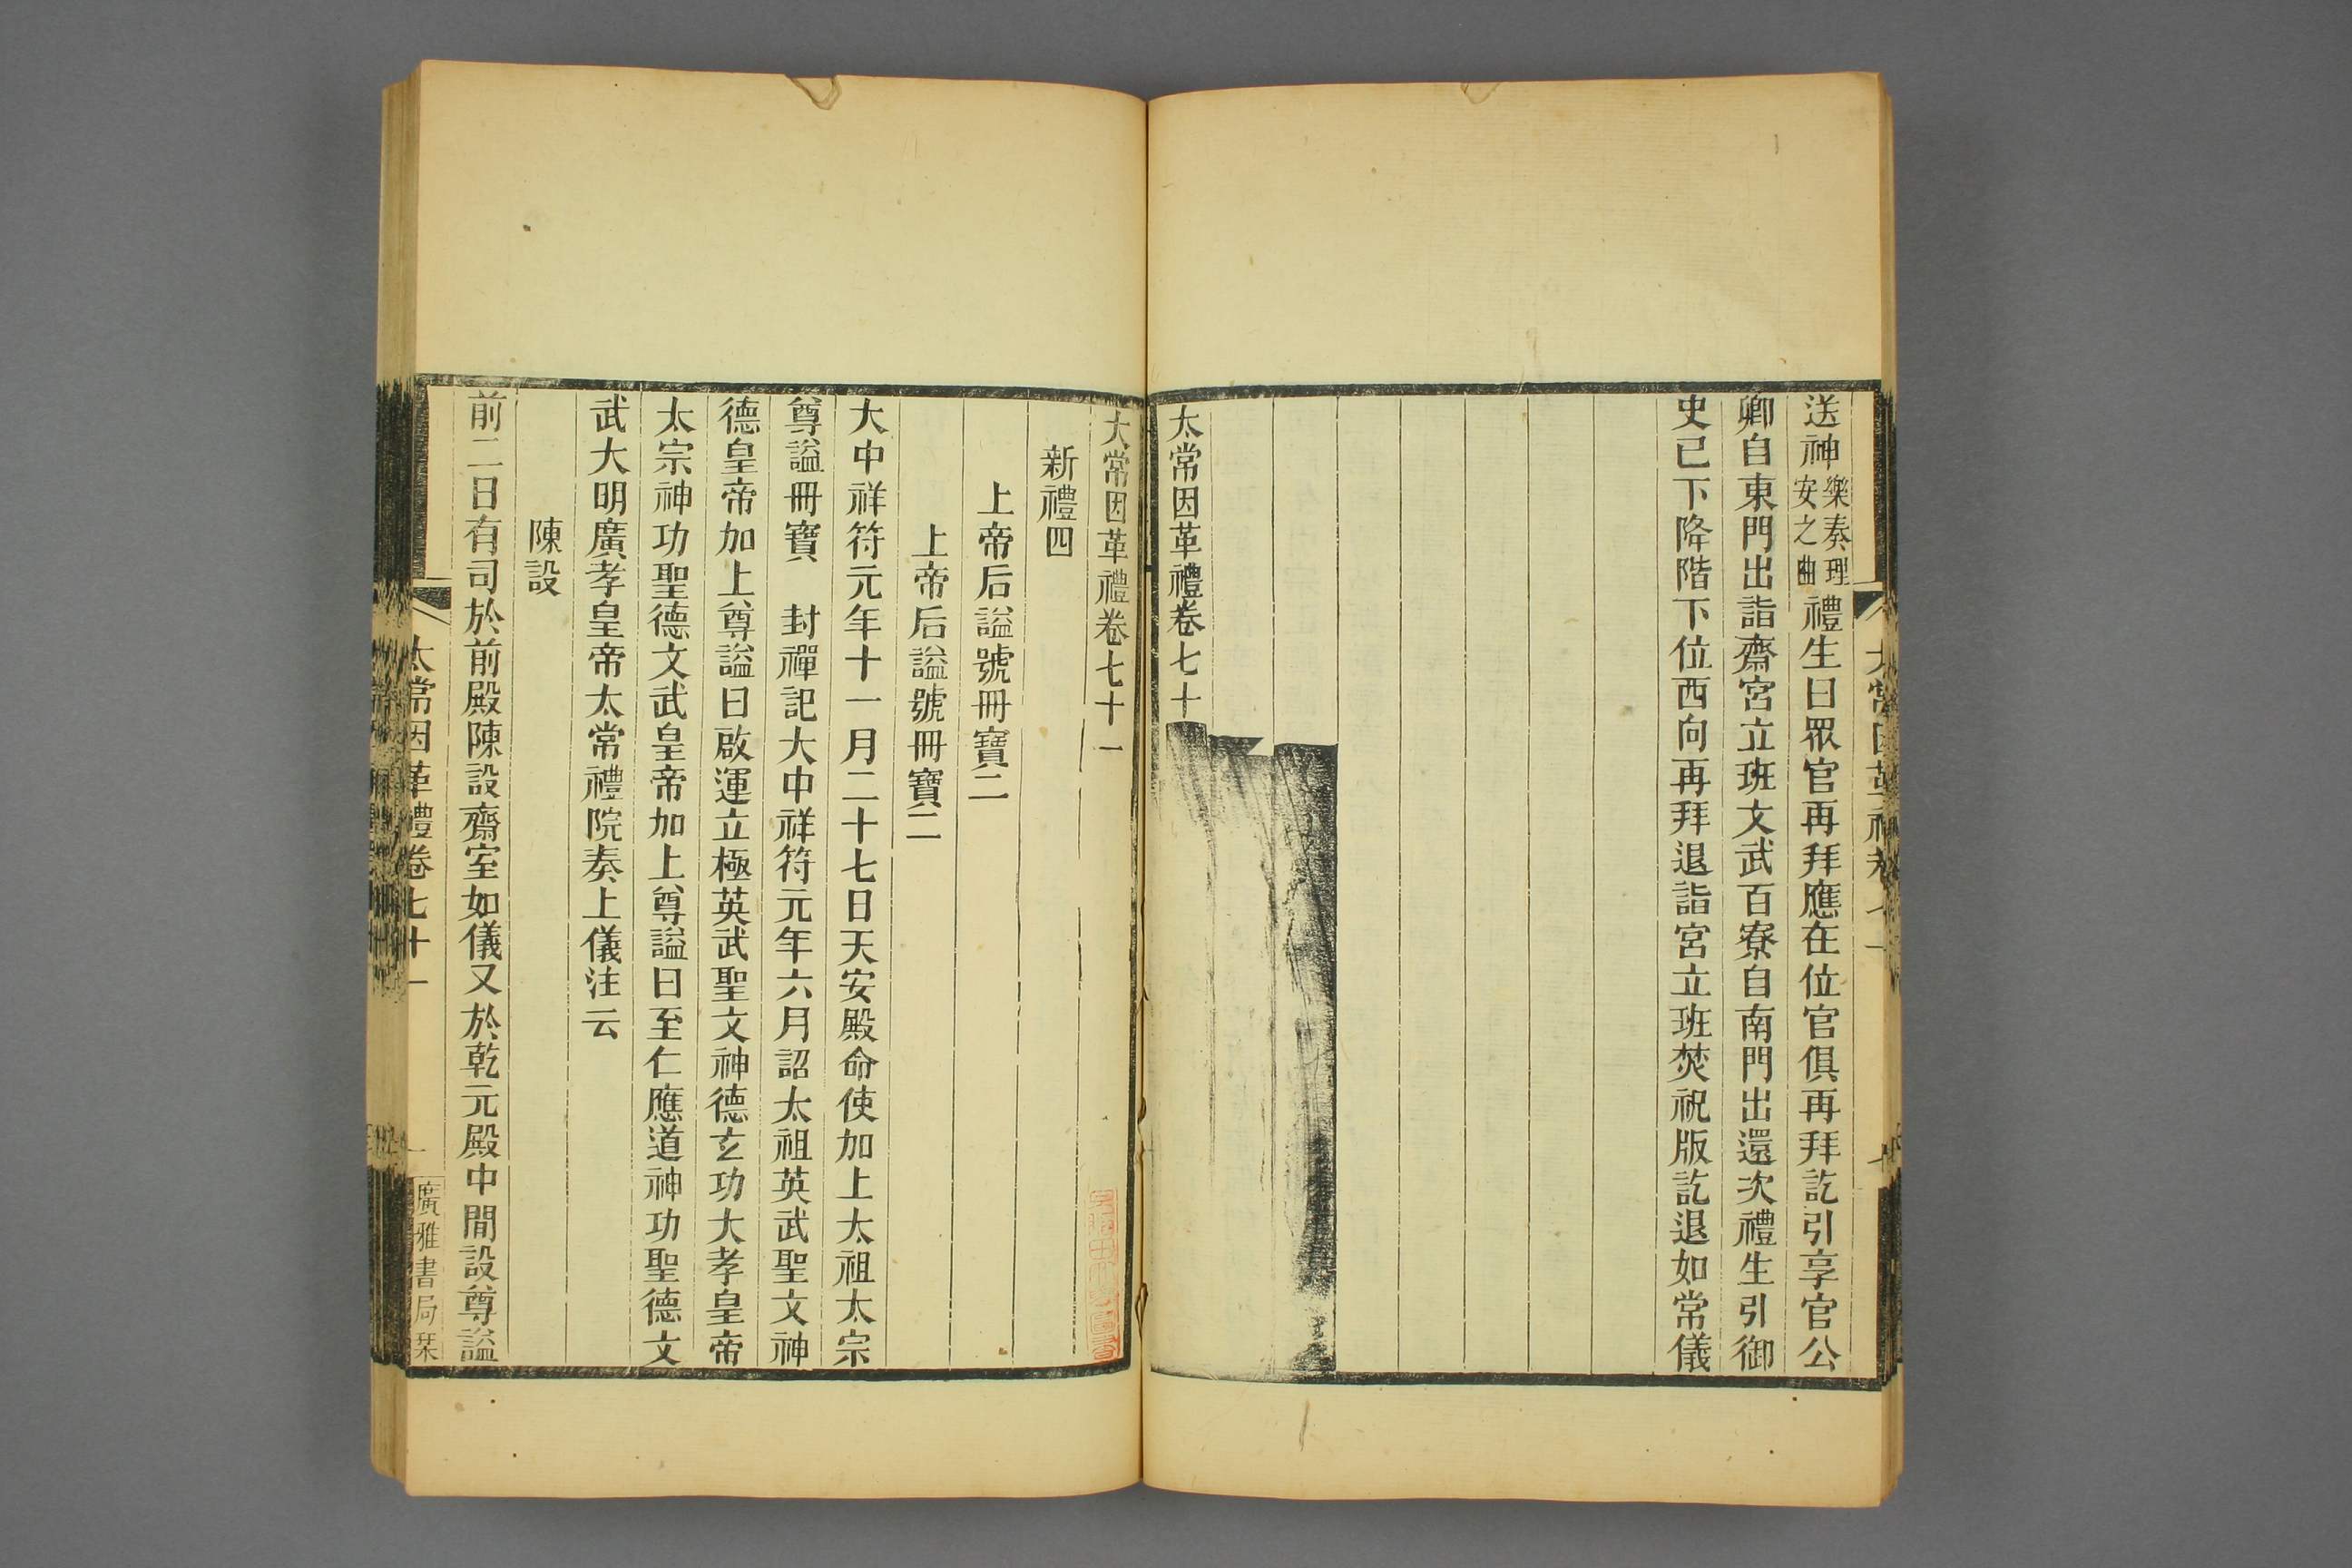 送神樂奏理安之曲禮生曰眾官再拜應在位官俱再拜訖引享官公
卿自東門出詣齋宮立班文武百寮自南門出還次禮生引御
史已下降階下位西向再拜退詣宮立班焚祝版訖退如常儀
太常因革禮卷七十
太常因革禮卷七十一
新禮四
上帝后謚號冊寶二
上帝后謚號冊寶二
大中祥符元年十一月二十七日天安殿命使加上太祖太宗
尊謚冊寶 封禪記大中祥符元年六月詔太祖英武聖文神
德皇帝加上尊謚曰啟運立極英武聖文神德玄功大孝皇帝
太宗神功聖德文武皇帝加上尊謚曰至仁應道神功聖德文
武大明廣孝皇帝太常禮院奏上儀注云
陳設
前二日有司於前殿陳設齋室如儀又於乾元殿中間設尊謚
太常因革禮卷七十一
一
廣雅書局栞